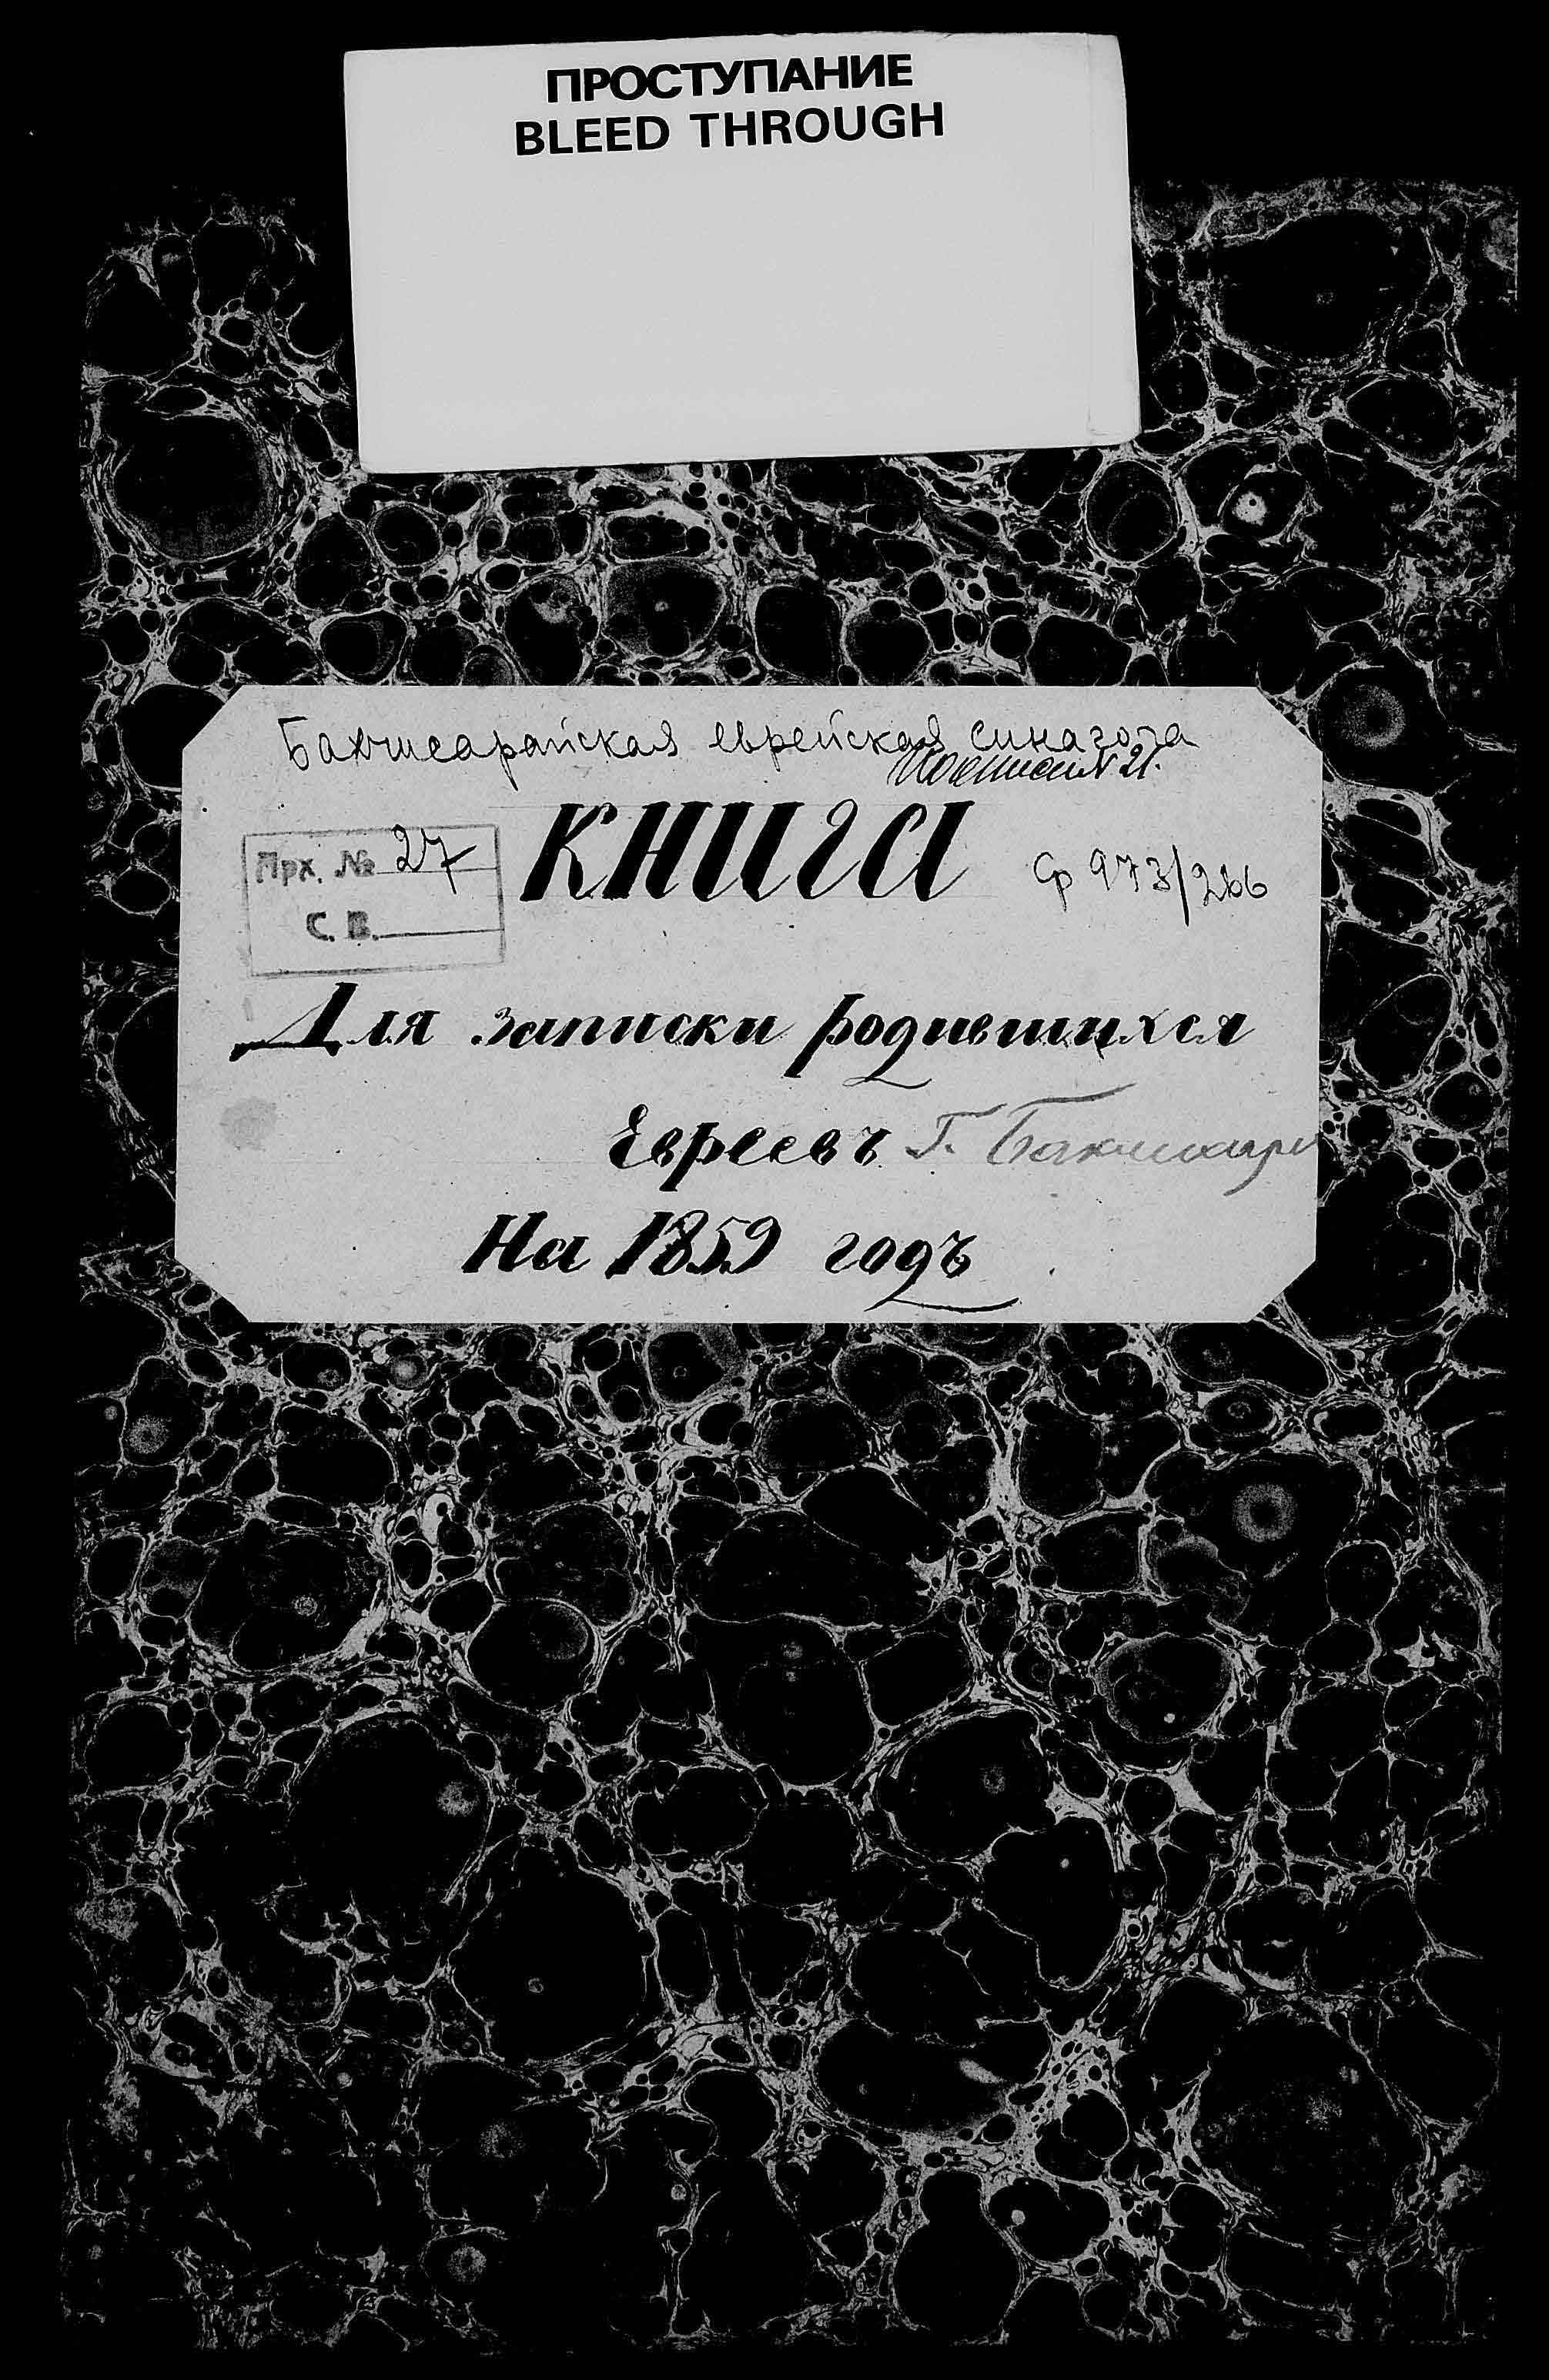 ПРОСТУПАНИЕ
BLEED THROUGH
Бахчисарайская еврейская синагога
№ 21.
Арх. № 27
КНИГА
ф 973/266
С. В.
Для записки родившихся
Евреевъ Г.
На 1859 годъ